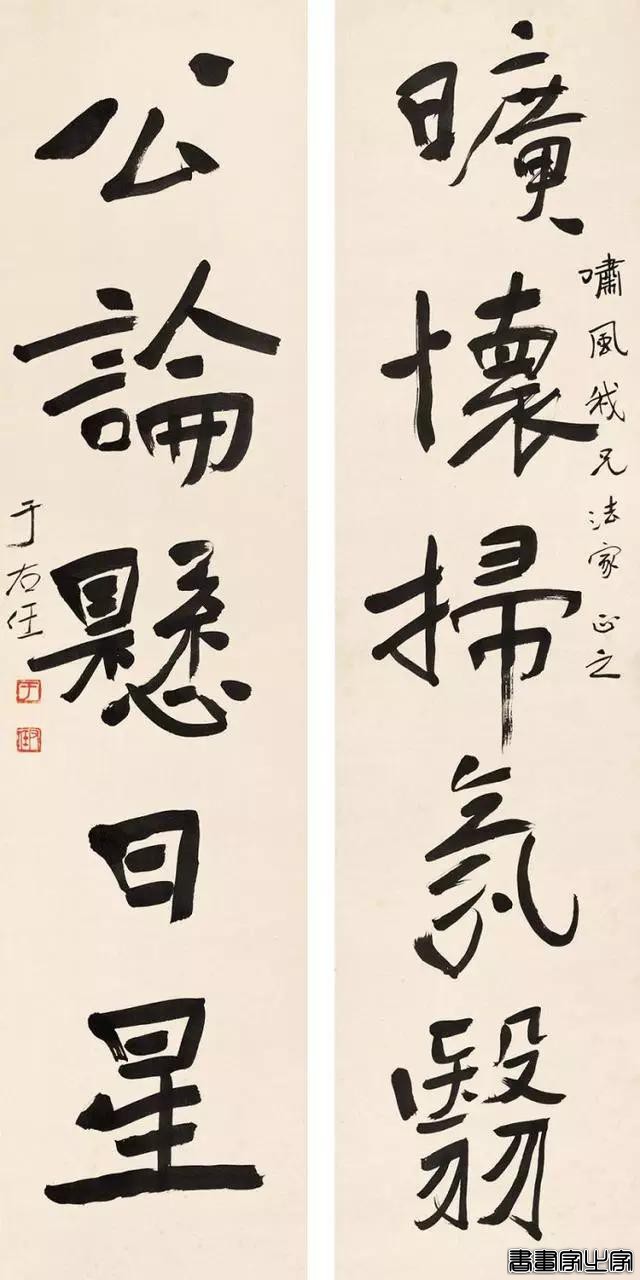 曠懷掃氛翳
嘯風我兄法家正之
公論懸日星
于右任
書畫家止家